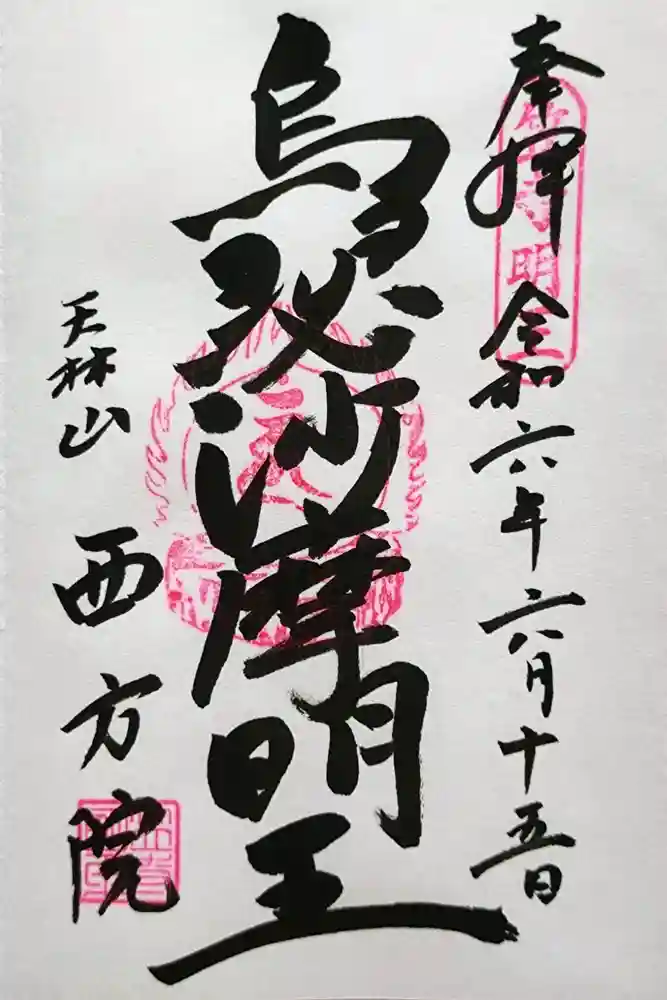 奉拝
令和六年六月十五日
烏瑟沙摩明王
天林山
西方院